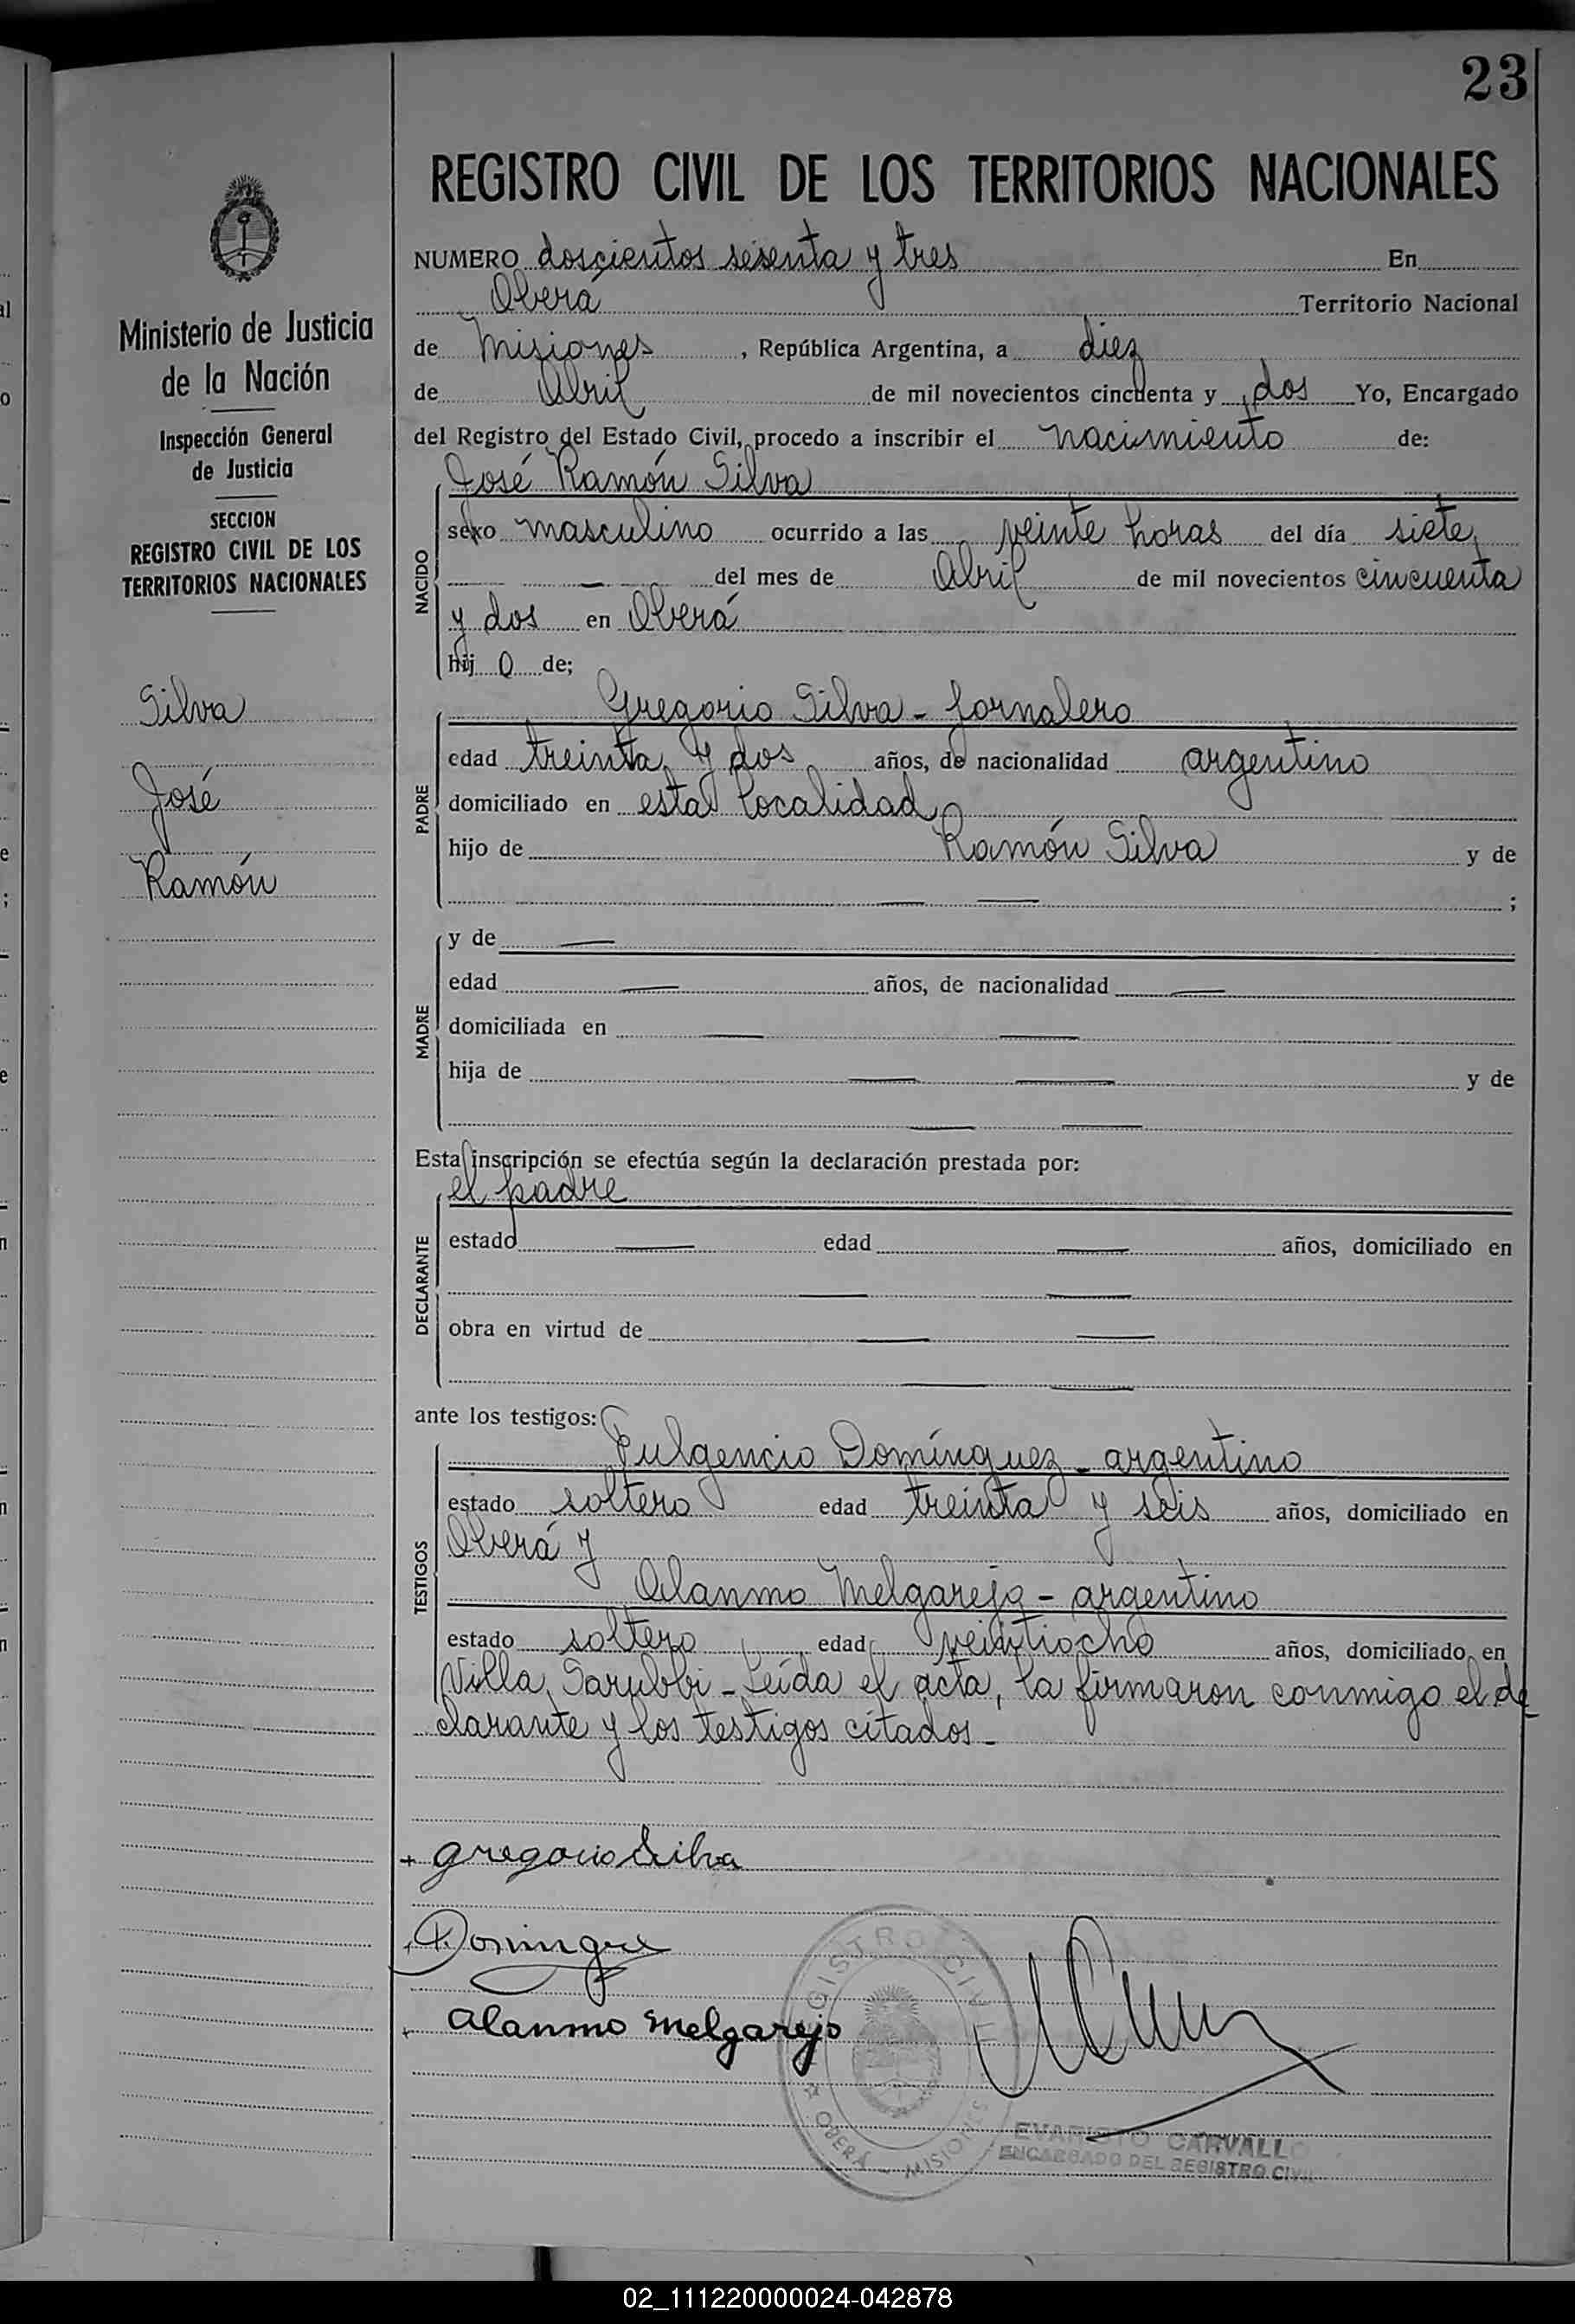 23
REGISTRO CIVIL DE LOS TERRITORIOS NACIONALES
Ministerio de Justicia
de la Nación
Inspección General
de Justicia
SECCION
REGISTRO CIVIL DE LOS
TERRITORIOS NACIONALES
Silva
José
Ramón
NUMERO doscientos sesenta y tres En
Oberá Territorio Nacional
de Misiones, República Argentina, a diez
de Abril de mil novecientos cincuenta y dos Yo, Encargado
del Registro del Estado Civil, procedo a inscribir el nacimiento de:
NACIDO
José Ramón Silva
sexo masculino ocurrido a las veinte horas del día siete
— del mes de Abril de mil novecientos cincuenta
y dos en Oberá
hij o de;
PADRE
Gregorio Silva - Jornalero
edad treinta y dos años, de nacionalidad argentino
domiciliado en esta localidad
hijo de Ramón Silva y de
— — ;
MADRE
y de —
edad — años, de nacionalidad —
domiciliada en — —
hija de — — y de
— —
Esta inscripción se efectúa según la declaración prestada por:
DECLARANTE
el padre
estado — edad — años, domiciliado en
— —
obra en virtud de — —
— —
ante los testigos:
TESTIGOS
Fulgencio Domínguez - argentino
estado soltero edad treinta y seis años, domiciliado en
Oberá y
Alanmo Melgarejo - argentino
estado soltero edad veintiocho años, domiciliado en
Villa Sarubbi - Leída el acta, la firmaron conmigo el de
clarante y los testigos citados -
+ gregorio Silva
Domingue
Alanmo Melgarejo
REGISTRO CIVIL
OBERÁ - MISIONES
EVARISTO CARVALLO
ENCARGADO DEL REGISTRO CIVIL
02_111220000024-042878